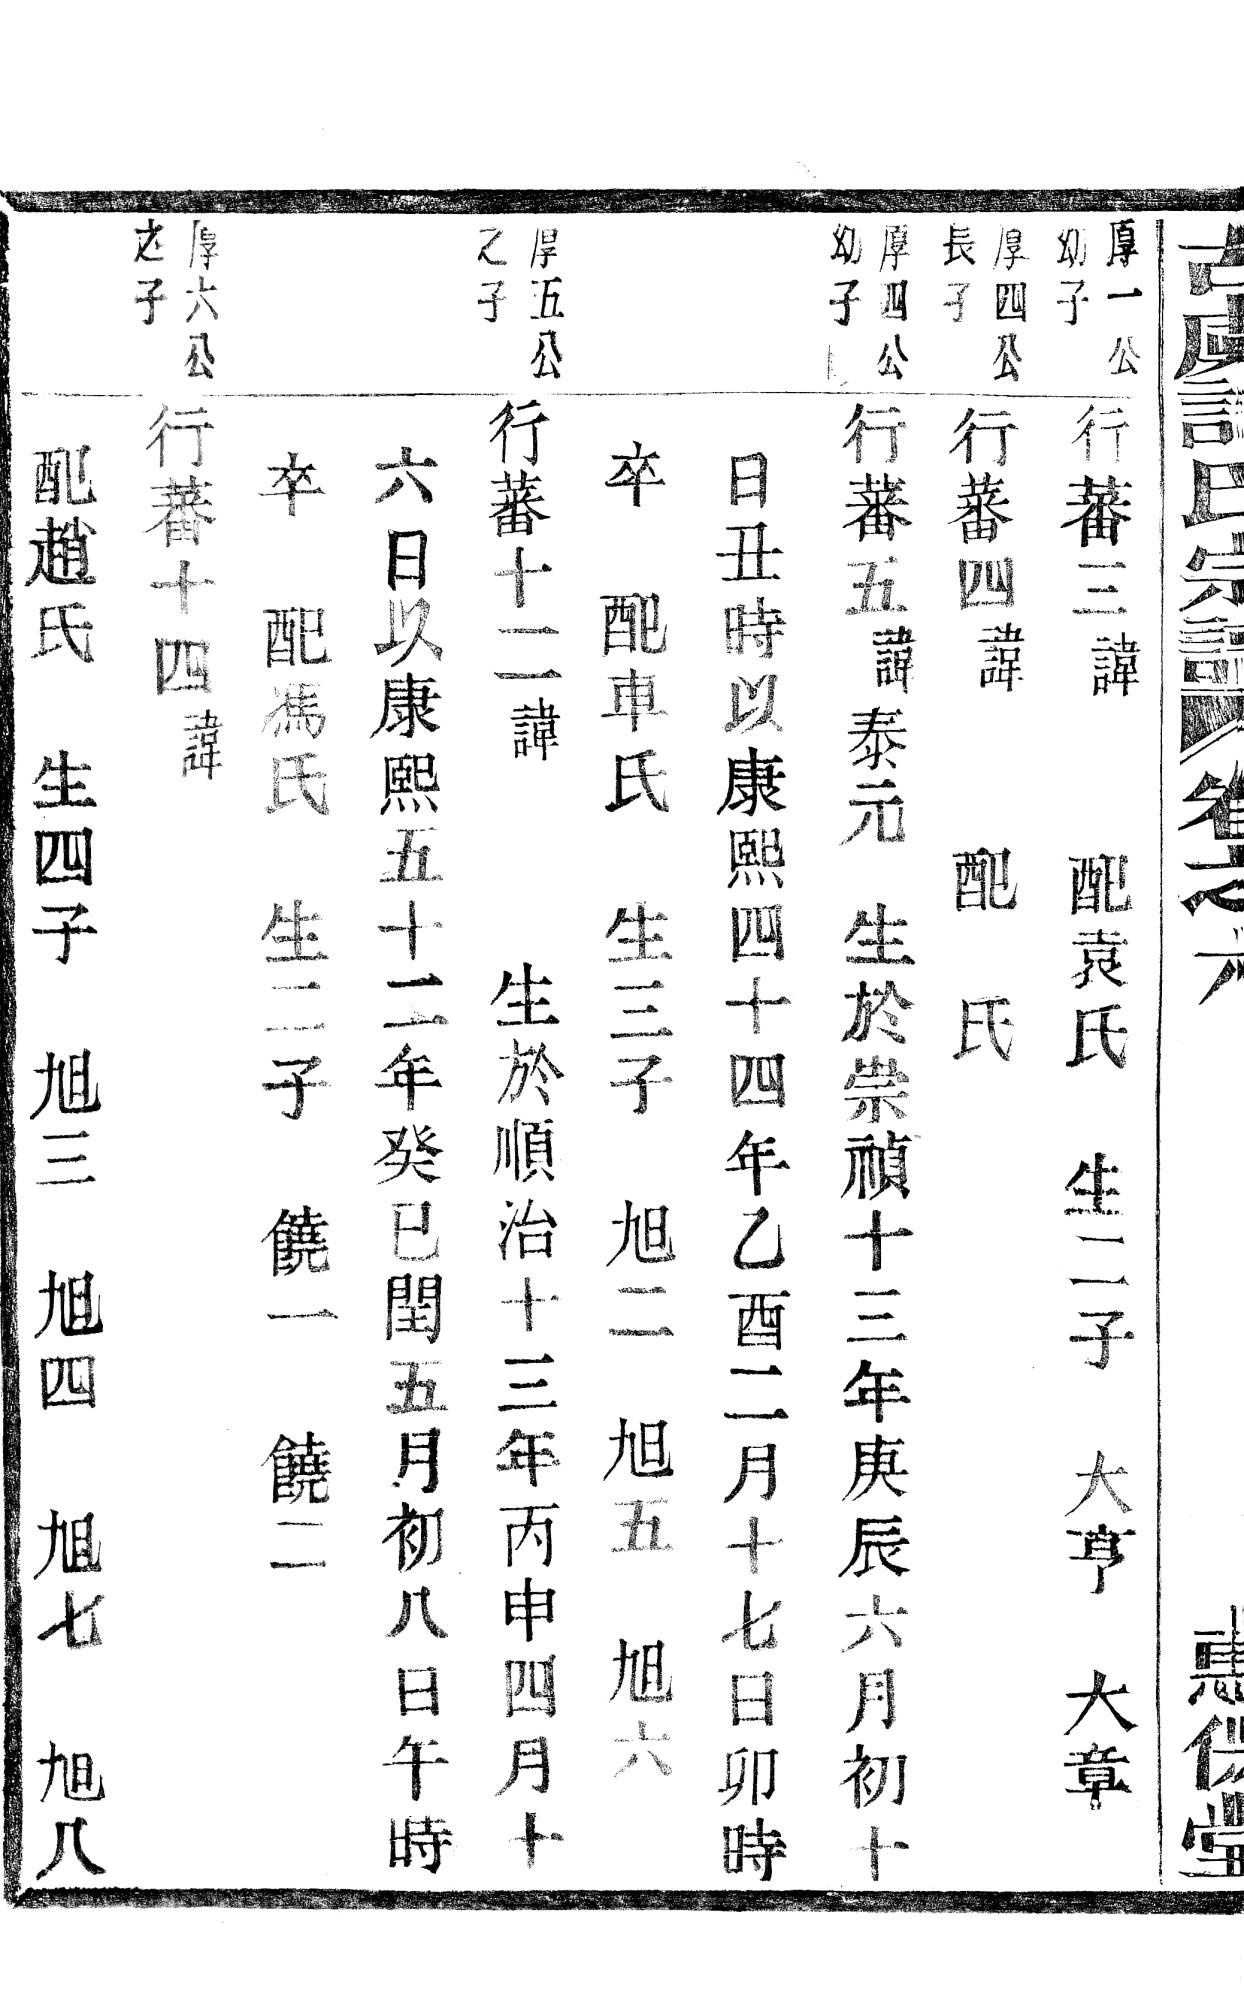 古虞謝氏宗譜 卷之六
厚一公
幼子
行蕃三諱 配袁氏 生二子 大亨 大章
厚四公
長子
行蕃四諱 配 氏
厚四公
幼子
行蕃五諱泰元 生於崇禎十三年庚辰六月初十
日丑時以康熙四十四年乙酉二月十七日卯時
卒 配車氏 生三子 旭二 旭五 旭六
厚五公
之子
行蕃十二諱 生於順治十三年丙申四月十
六日以康熙五十二年癸巳閏五月初八日午時
卒 配馮氏 生二子 饒一 饒二
厚六公
之子
行蕃十四諱
配趙氏 生四子 旭三 旭四 旭七 旭八
堂